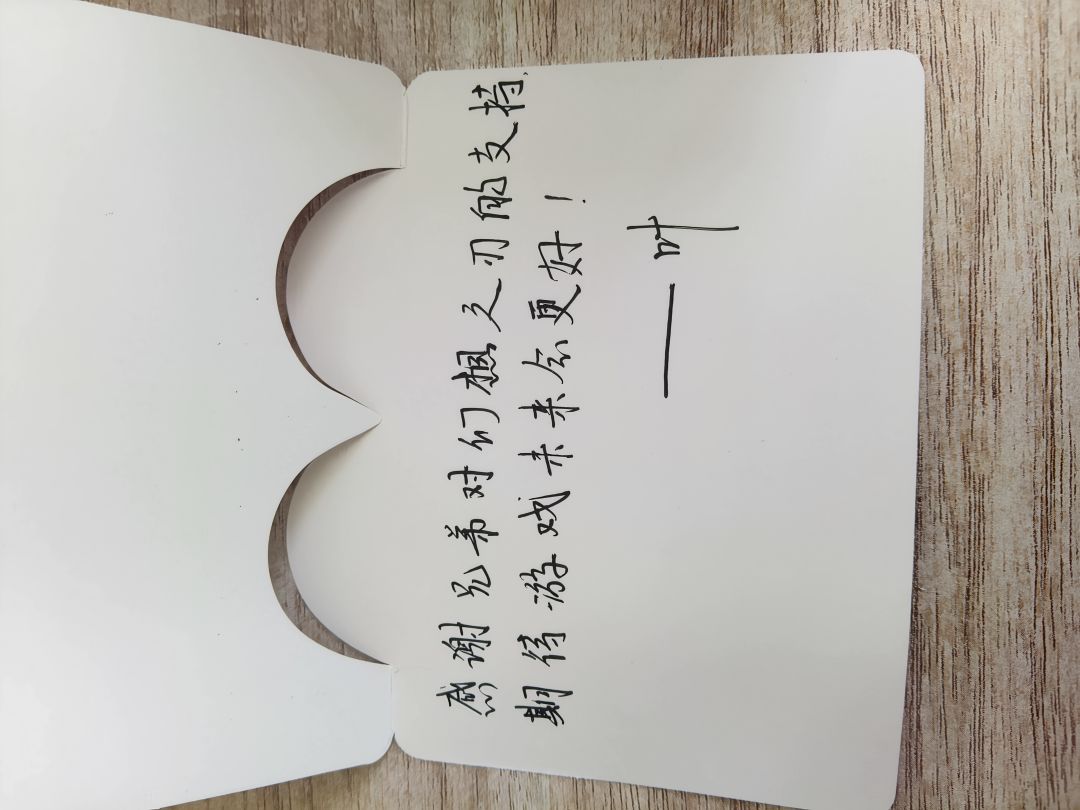 感谢兄弟对幻想之刃的支持，
期待游戏未来会更好！
——叶